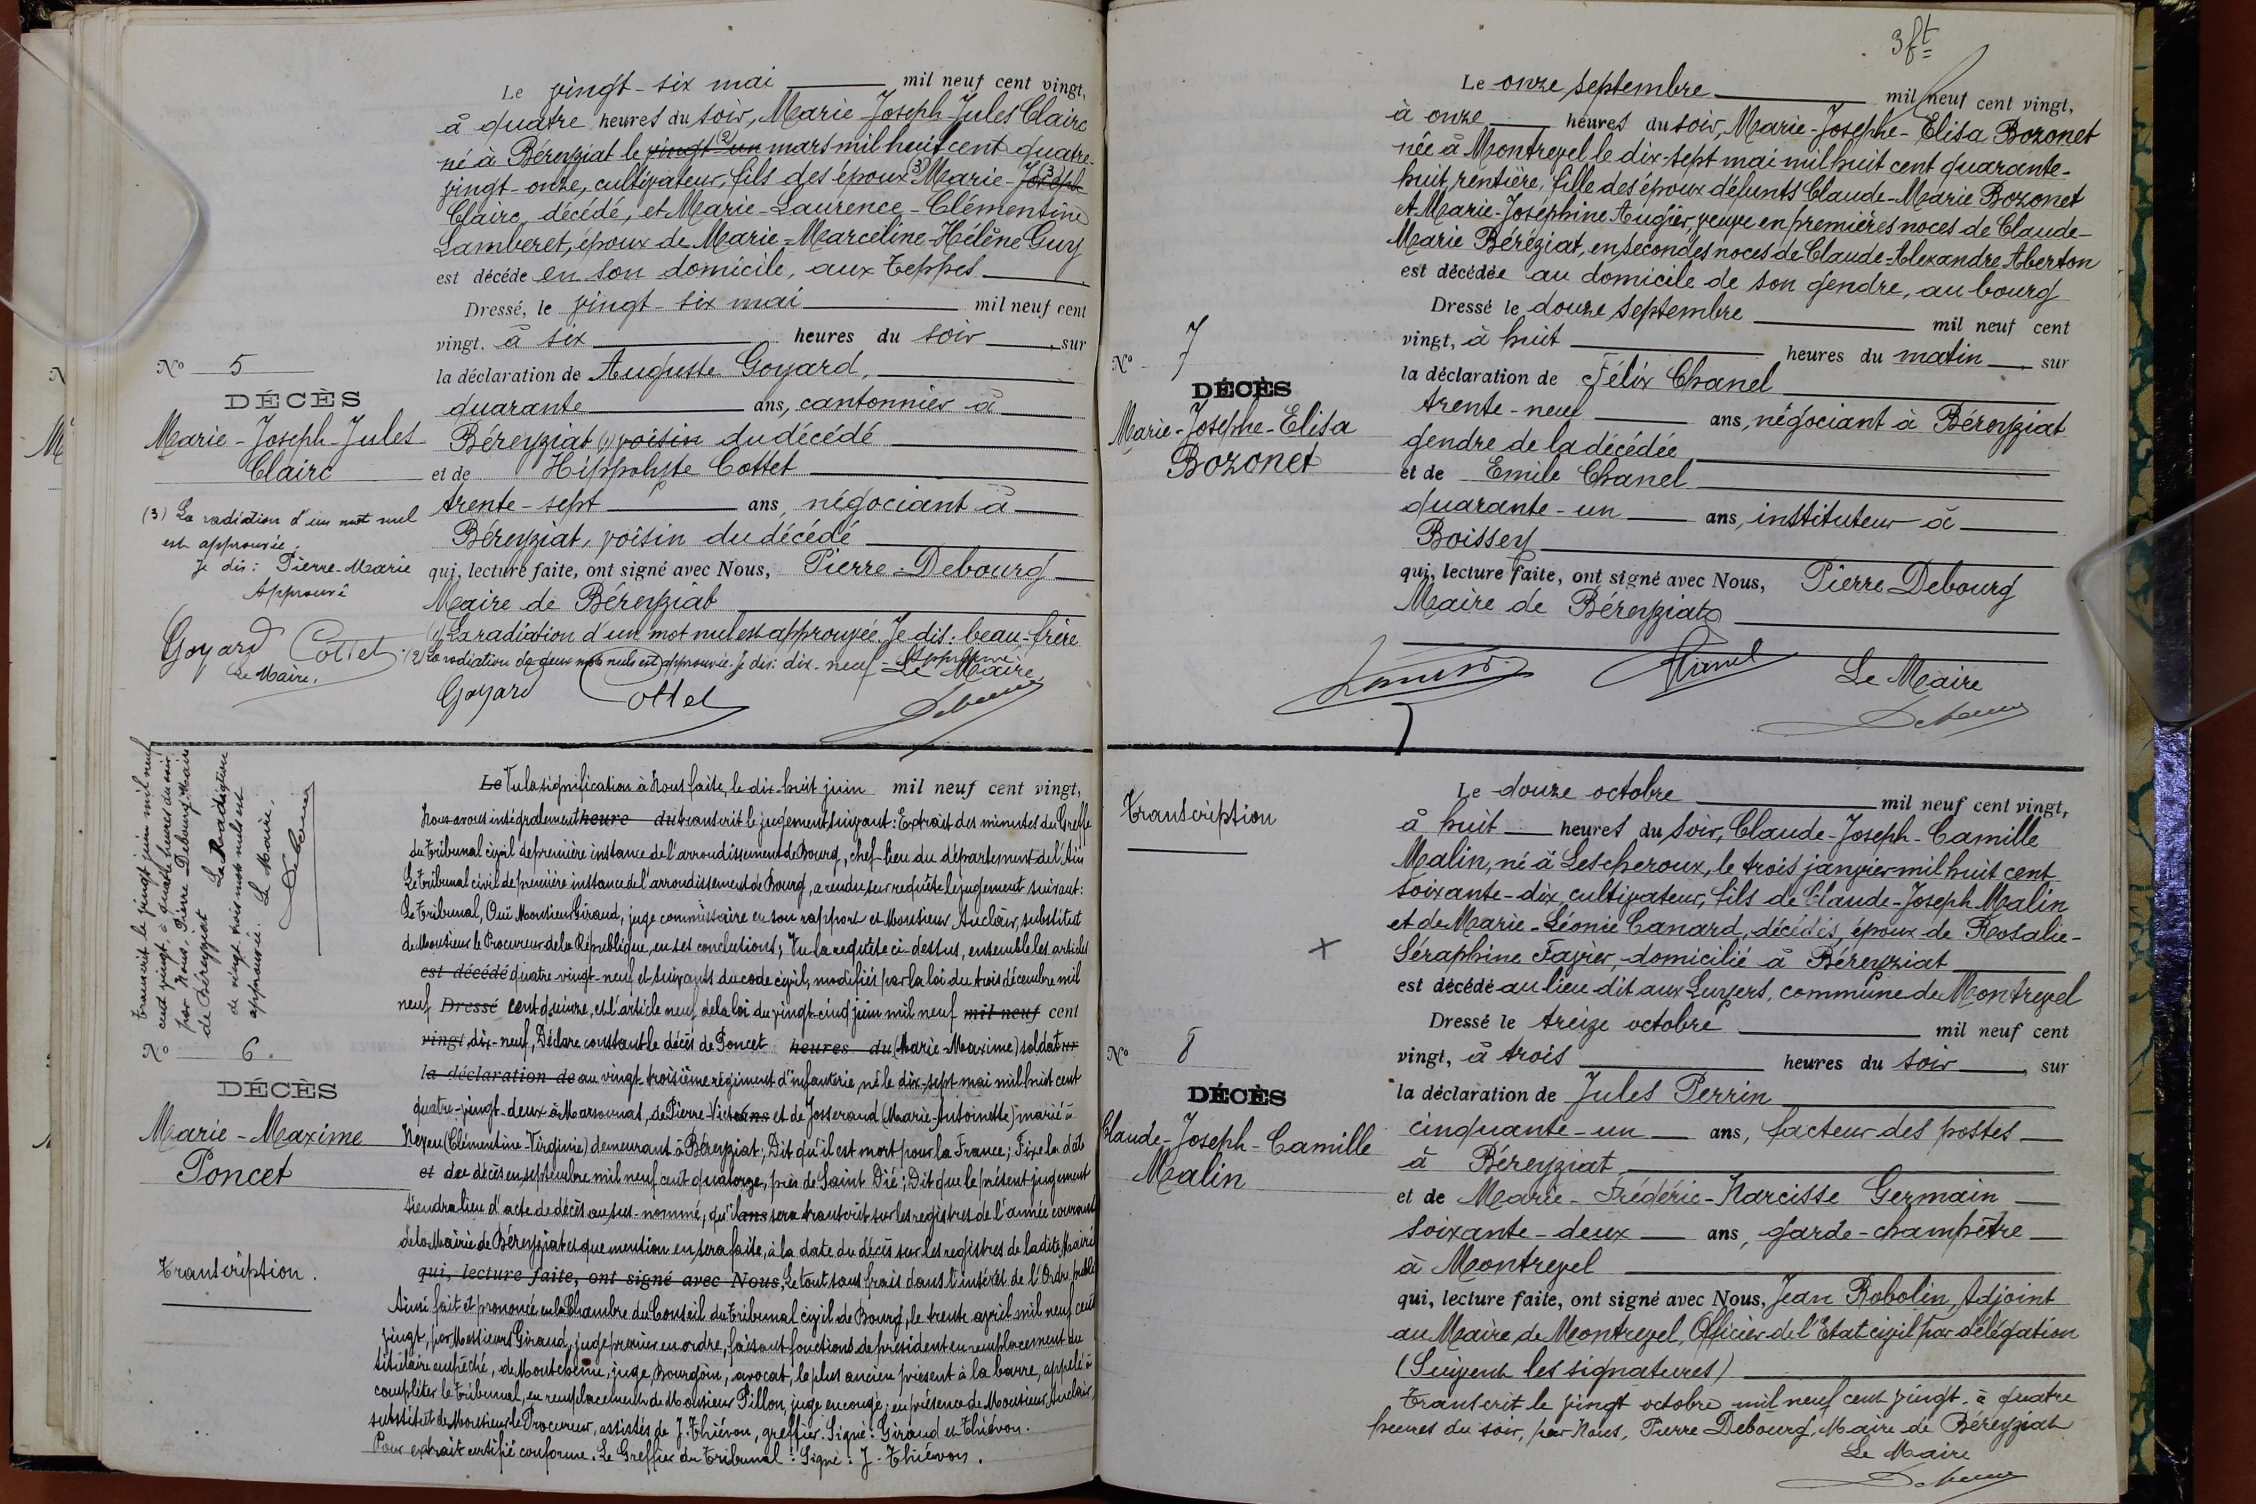 Le vingt-six mai mil neuf cent vingt,
à quatre heures du soir, Marie-Joseph-Jules Clairc
né à Béreyziat le vingt (2) un mars mil huit cent quatre-
vingt-onze, cultivateur, fils des époux (3) Marie-Joseph
Clairc, décédé, et Marie-Laurence-Clémentine
Lamberet, époux de Marie-Marceline-Hélène Guy
est décédé en son domicile, aux Teppes.
Dressé, le vingt-six mai mil neuf cent
vingt. à six heures du soir, sur
la déclaration de Auguste Goyard,
quarante ans, cantonnier à
Béreyziat (1) voisin du décédé
et de Hippolyte Cottet
trente-sept ans, négociant à
Béreyziat, voisin du décédé
qui, lecture faite, ont signé avec Nous, Pierre Debourg
Maire de Béreyziat
(1) La radiation d'un mot nul est approuvée. Je dis: beau-frère
(2) La radiation de deux mots nuls est approuvée. Je dis: dix-neuf - Approuvé
Le Maire,
Goyard Cottet Debourg
No 5
DÉCÈS
Marie-Joseph-Jules
Clairc
(3) La radiation d'un mot nul
est approuvée.
Je dis: Pierre-Marie
Approuvé
Goyard Cottet
Le Maire.
Transcrit le vingt juin mil neuf
cent vingt, à quatre heures du soir
par Nous, Pierre Debourg Maire
de Béreyziat La Radiation
de vingt trois mots nuls est
approuvée. Le Maire.
Debourg
No 6.
DÉCÈS
Marie-Maxime
Poncet
Transcription.
Le Vu la signification à Nous faite, le dix-huit juin mil neuf cent vingt,
Nous avons intégralement heure du transcrit le jugement suivant: Extrait des minutes du Greffe
du Tribunal civil de première instance de l'arrondissement de Bourg, chef-lieu du département de l'Ain
Le Tribunal civil de première instance de l'arrondissement de Bourg, a rendu sur requête le jugement suivant:
Le Tribunal, Ouï Monsieur Giraud, juge commissaire en son rapport et Monsieur Auclair, substitut
de Monsieur le Procureur de la République, en ses conclusions; Vu la requête ci-dessus, ensemble les articles
est décédé quatre-vingt-neuf et suivants du code civil, modifiés par la loi du trois décembre mil
neuf Dressé cent quinze, et l'article neuf de la loi du vingt-cinq juin mil neuf mil neuf cent
vingt, dix-neuf, Déclare constant le décès de Poncet heures du (Marie-Maxime) soldat sur
la déclaration de au vingt-troisième régiment d'infanterie, né le dix-sept mai mil huit cent
quatre-vingt-deux à Marsonnas, de Pierre-Victor ans et de Josserand (Marie-Antoinette) marié à
Neyen (Clémentine-Virginie) demeurant à Béreyziat; Dit qu'il est mort pour la France; Fixe la date
et de décès en septembre mil neuf cent quatorze, près de Saint Dié; Dit que le présent jugement
tiendra lieu d'acte de décès au sus-nommé, qu'il ans sera transcrit sur les registres de l'année courante
de la Mairie de Béreyziat et que mention en sera faite, à la date du décès sur les registres de ladite Mairie
qui, lecture faite, ont signé avec Nous, Le tout sans frais dans l'intérêt de l'Ordre public
Ainsi fait et prononcé en la Chambre du Conseil du Tribunal civil de Bourg, le trente avril mil neuf cent
vingt, par Messieurs Giraud, juge premier en ordre, faisant fonctions de président en remplacement du
titulaire empêché, de Montchenu, juge, Bourgoin, avocat, le plus ancien présent à la barre, appelé à
compléter le Tribunal, en remplacement de Monsieur Pillon, juge en congé; en présence de Monsieur Auclair,
substitut de Monsieur le Procureur, assistés de J. Thiévon, greffier. Signé: Giraud et Thiévon.
Pour extrait certifié conforme. Le Greffier du Tribunal: Signé: J. Thiévon.
3 ft
Le onze septembre mil neuf cent vingt,
à onze heures du soir, Marie-Josephe-Elisa Bozonet
née à Montrevel le dix-sept mai mil huit cent quarante-
huit, rentière, fille des époux défunts Claude-Marie Bozonet
et Marie-Joséphine Augier, veuve en premières noces de Claude-
Marie Béréziat, en secondes noces de Claude-Alexandre Aberton
est décédée au domicile de son gendre, au bourg
Dressé le douze septembre mil neuf cent
vingt, à huit heures du matin, sur
la déclaration de Félix Chanel
trente-neuf ans, négociant à Béreyziat
gendre de la décédée
et de Emile Chanel
quarante-un ans, instituteur à
Boissey
qui, lecture faite, ont signé avec Nous, Pierre Debourg
Maire de Béreyziat
Chanel Le Maire
Debourg
No 7
DÉCÈS
Marie-Josephe-Elisa
Bozonet
Transcription
Le douze octobre mil neuf cent vingt,
à huit heures du soir, Claude-Joseph-Camille
Malin, né à Lescheroux, le trois janvier mil huit cent
soixante-dix, cultivateur, fils de Claude-Joseph Malin
et de Marie-Léonie Canard, décédés, époux de Rosalie-
Séraphine Favier, domicilié à Béreyziat
est décédé au lieu dit aux Luyers, commune de Montrevel
Dressé le treize octobre mil neuf cent
vingt, à trois heures du soir, sur
la déclaration de Jules Perrin
cinquante-un ans, facteur des postes
à Béreyziat
et de Marie-Frédéric-Narcisse Germain
soixante-deux ans, garde-champêtre
à Montrevel
qui, lecture faite, ont signé avec Nous, Jean Robolin, Adjoint
au Maire de Montrevel, Officier de l'Etat civil par délégation
(Suivent les signatures)
Transcrit le vingt octobre mil neuf cent vingt, à quatre
heures du soir, par Nous, Pierre Debourg, Maire de Béreyziat
Le Maire
Debourg
No 8
DÉCÈS
Claude-Joseph-Camille
Malin